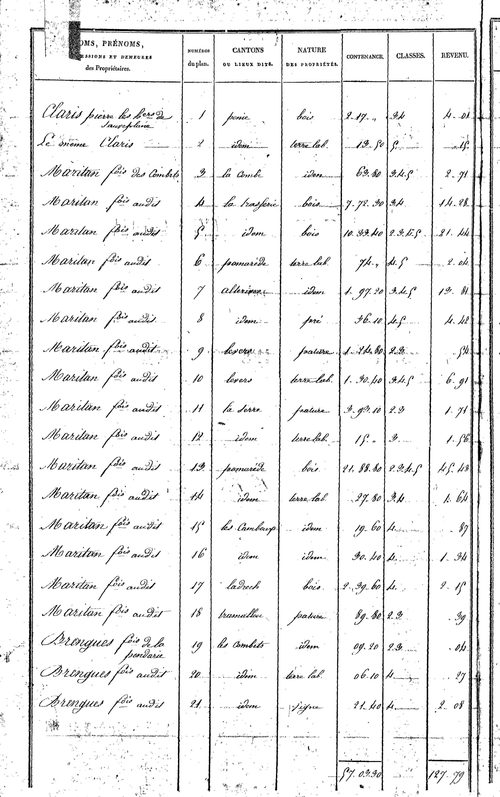 OMS, PRÉNOMS, NUMÉROS CANTONS NATURE CONTENANCE. CLASSES. REVENU.
ESSIONS ET DEMEURES du plan. OU LIEUX DITS. DES PROPRIÉTÉS.
des Propriétaires.
Claris pierre les hers de 1 bois 2. 17. „ 3.4 4. 01
Le même Claris 2 idem terre lab. 13. 50 5 15
Maritan fois des Combets 3 la Combe idem 63. 80 3.4.5 2. 71
Maritan fois audit 4 bois 7. 72. 30 3.4 14. 28
Maritan fois audit 5 idem bois 10. 33. 40 2.3.4.5 21. 44
Maritan fois audit 6 pomarède terre lab. 74. „ 4.5 2. 04
Maritan fois audit 7 idem 1. 97. 20 3.4.5 13. 81
Maritan fois audit 8 idem pré 36. 10 4.5 4. 42
Maritan fois audit 9 levers pature 1. 24. 80 2.3 54
Maritan fois audit 10 levers terre lab. 1. 30. 40 3.4.5 6. 91
Maritan fois audit 11 la serre pature 3. 93. 10 2.3 1. 71
Maritan fois audit 12 idem terre lab. 15. „ 3 1. 56
Maritan fois audit 13 pomarède bois 21. 88. 80 2.3.4.5 45. 43
Maritan fois audit 14 idem terre lab. 27. 80 3.4 1. 64
Maritan fois audit 15 les idem 19. 60 4 87
Maritan fois audit 16 idem idem 30. 40 4 1. 34
Maritan fois audit 17 ladrech bois 2. 39. 60 4 2. 15
Maritan fois audit 18 pature 89. 80 2.3 39
Brengues fois de la 19 les Combets idem 09. 20 2.3 04
pendarie
Brengues fois audit 20 idem terre lab. 06. 10 4 27
Brengues fois audit 21 idem vigne 21. 40 4 2. 08
57. 03. 30 127. 79